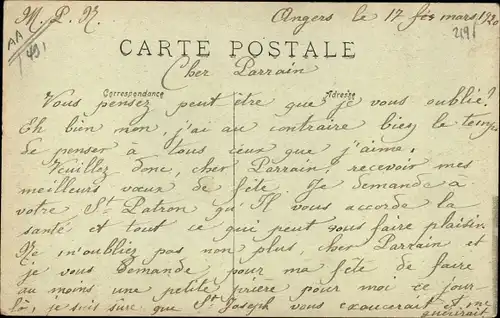 M. P. R. Angers le 17 mars 1920
AA
491
CARTE POSTALE
Cher Parrain
Correspondance Adresse
Vous pensez peut être que je vous oublie?
Eh bien non, j'ai au contraire bien le temps
de penser à tous ceux que j'aime.
Veuillez donc, cher Parrain, recevoir mes
meilleurs vœux de fête. Je demande à
votre St Patron qu'Il vous accorde la
santé et tout ce qui peut vous faire plaisir.
Ne m'oubliez pas non plus, cher Parrain et
je vous demande pour ma fête de faire
au moins une petite prière pour moi ce jour-
là, je suis sûre que St Joseph vous exaucerait et me
guérirait